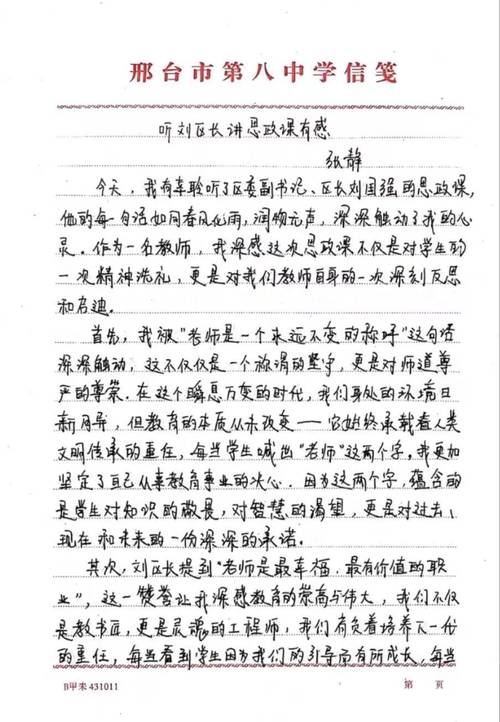 邢台市第八中学信笺
听刘区长讲思政课有感
张静
今天，我有幸聆听了区委副书记、区长刘国强的思政课，
他的每一句话如同春风化雨，润物无声，深深触动了我的心
灵。作为一名教师，我深感这次思政课不仅是对学生的
一次精神洗礼，更是对我们教师自身的一次深刻反思
和启迪.
首先，我被"老师是一个永远不变的称呼"这句话
深深触动，这不仅仅是一个称谓的坚守，更是对师道尊
严的尊崇。在这个瞬息万变的时代，我们身处的环境日
新月异，但教育的本质从未改变——它始终承载着人类
文明传承的重任，每当学生喊出"老师"这两个字，我更加
坚定了自己从事教育事业的决心。因为这两个字，蕴含的
是学生对知识的敬畏，对智慧的渴望，更是对过去、
现在和未来的一份深深的承诺.
其次，刘区长提到"老师是最幸福、最有价值的职
业"，这一赞誉让我深感教育的崇高与伟大，我们不仅
是教书匠，更是灵魂的工程师，我们肩负着培养下一代
的重任，每当看到学生因为我们的引导而有所成长，每当
B甲末431011
第 页